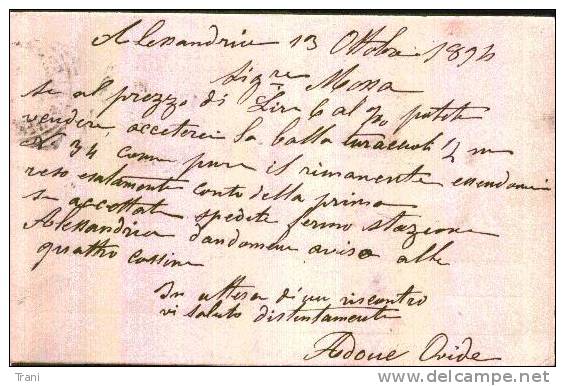 Alessandria 13 Ottobre 1894
Sigre Mossa
Se al prezzo di Lire 6 al % potete
vendere, accetterei la balla turaccioli
N 34 come pure il rimanente essendomi
reso esatamente conto della prima
se accettate spedite fermo stazione
Alessandria dandomene aviso alle
quattro cassine
In attesa di un riscontro
vi saluto distintamente
Adone Ovide
Trani
delcampe.net